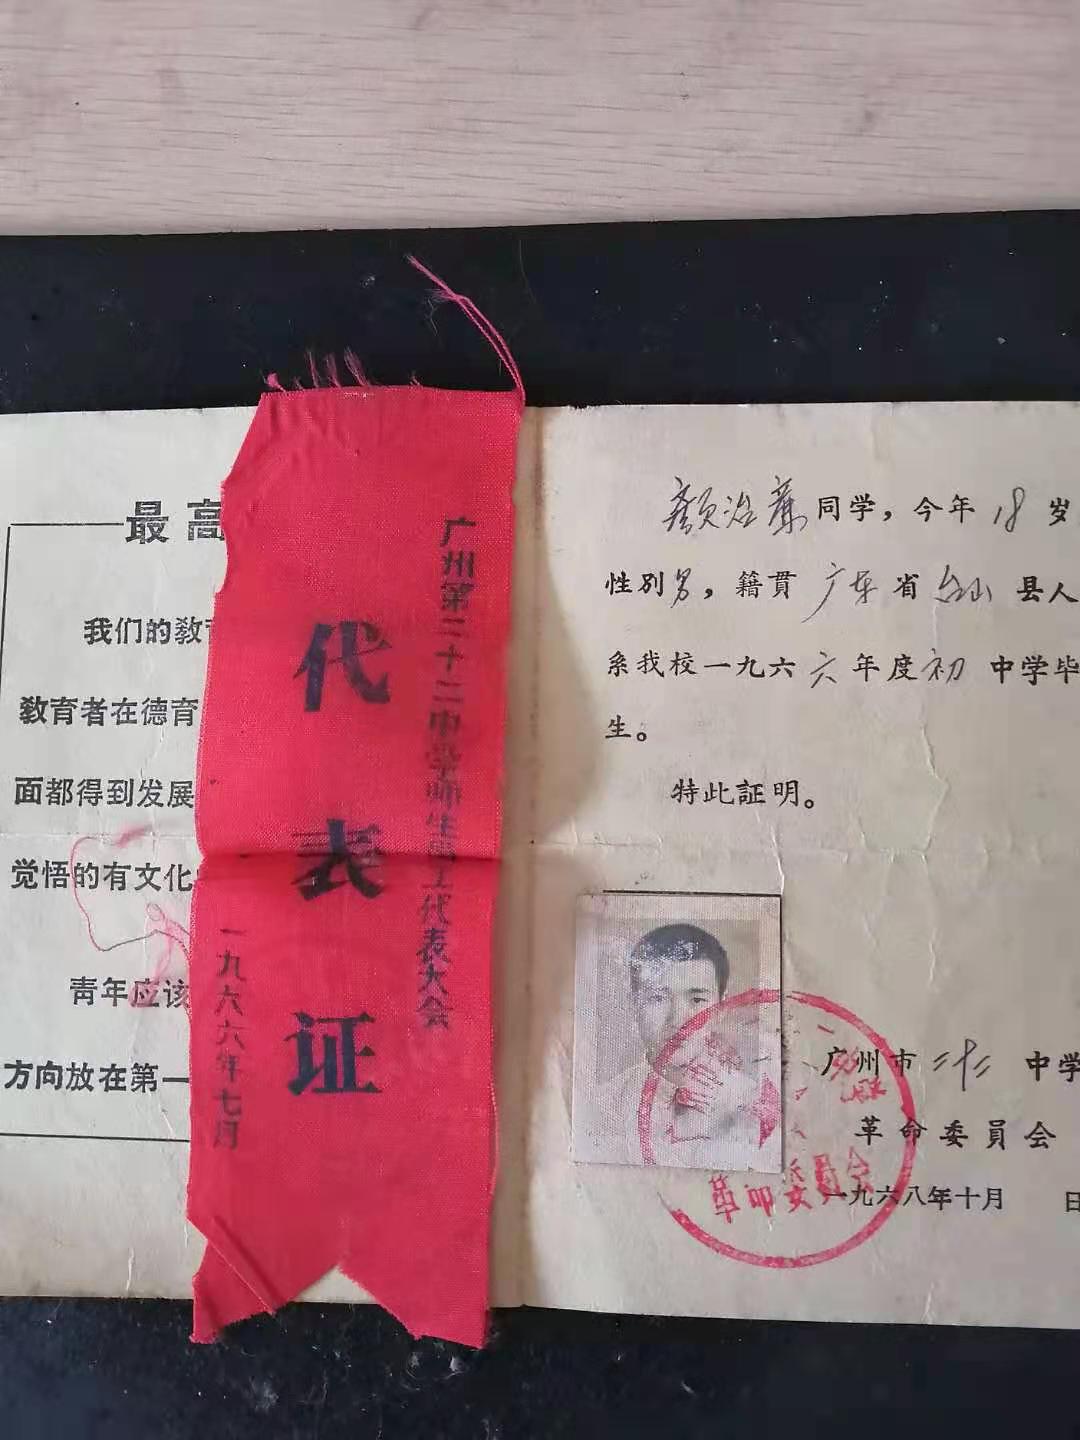 最高
我们的敎育
敎育者在德育
面都得到发展
觉悟的有文化
靑年应该
方向放在第一
广州第二十二中学师生员工代表大会
代表证
一九六六年七月
颜治 同学，今年 18 岁
性别 男，籍贯 广东 省 台山 县人
系我校一九六 六 年度 初 中学毕
生。
特此証明。
广州市 二十二 中学
革命委員会
一九六八年十月 日
革命委员会